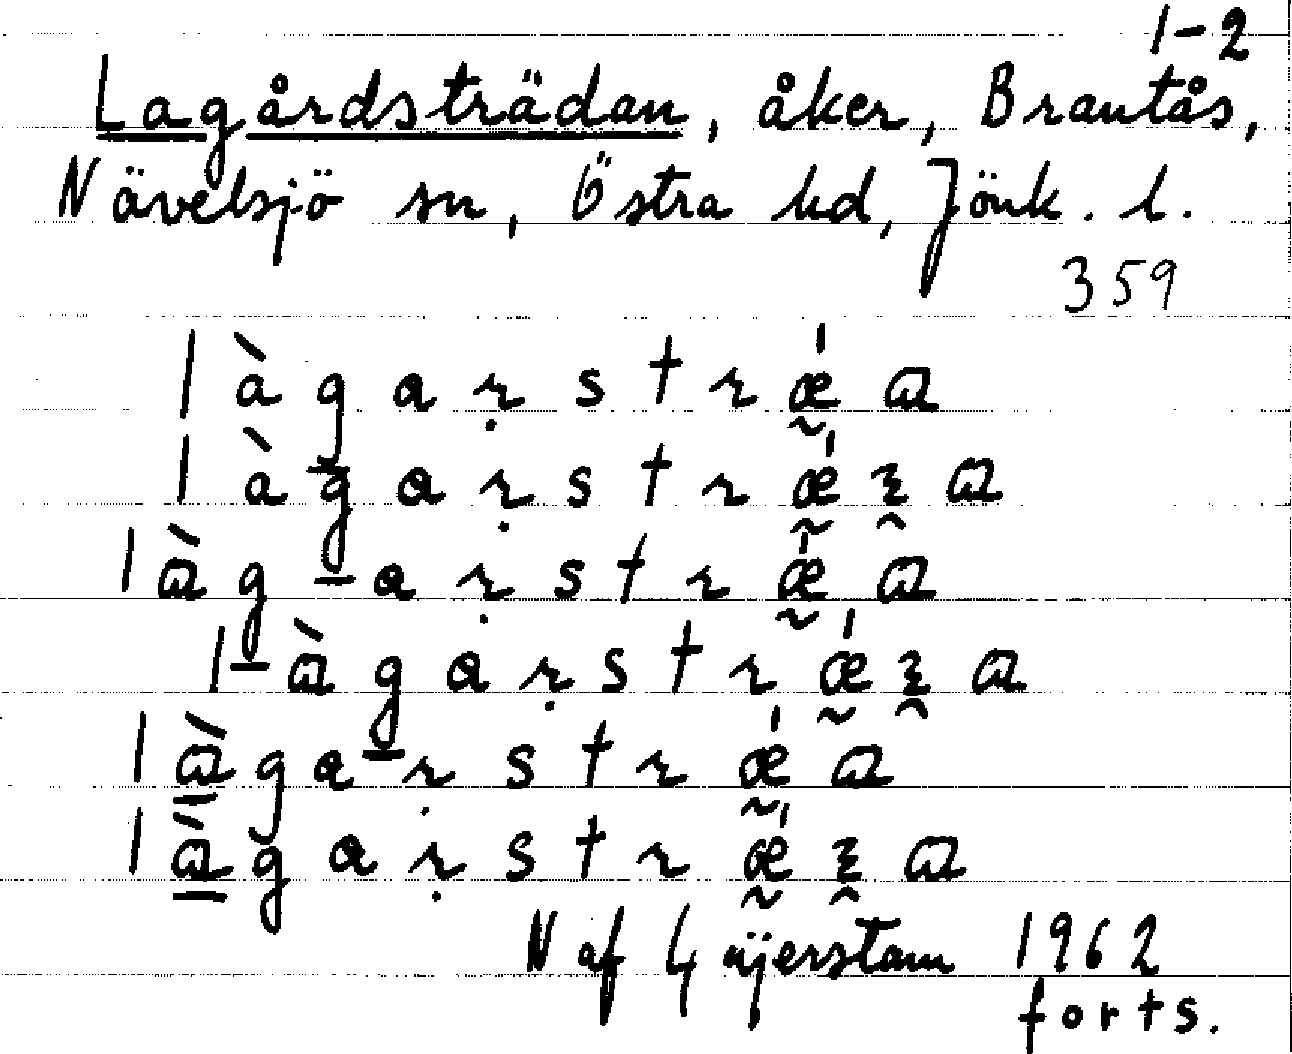 1-2
Lagårdsträdan, åker, Brantås,
Nävelsjö sn, Östra hd, Jönk. l.
359
l à g a ṛ s t r ǽ̰ ɑ
l à g a ṛ s t r ǽ̰ ɀ̯ ɑ
l ɑ̀ g a ṛ s t r ǽ̰ ɑ
l ɑ̀ g a ṛ s t r ǽ̰ ɀ̯ ɑ
l ɑ̱̀ g a ṛ s t r ǽ̰ ɑ
l ɑ̱̀ g a ṛ s t r ǽ̰ ɀ̯ ɑ
N af 1962
forts.